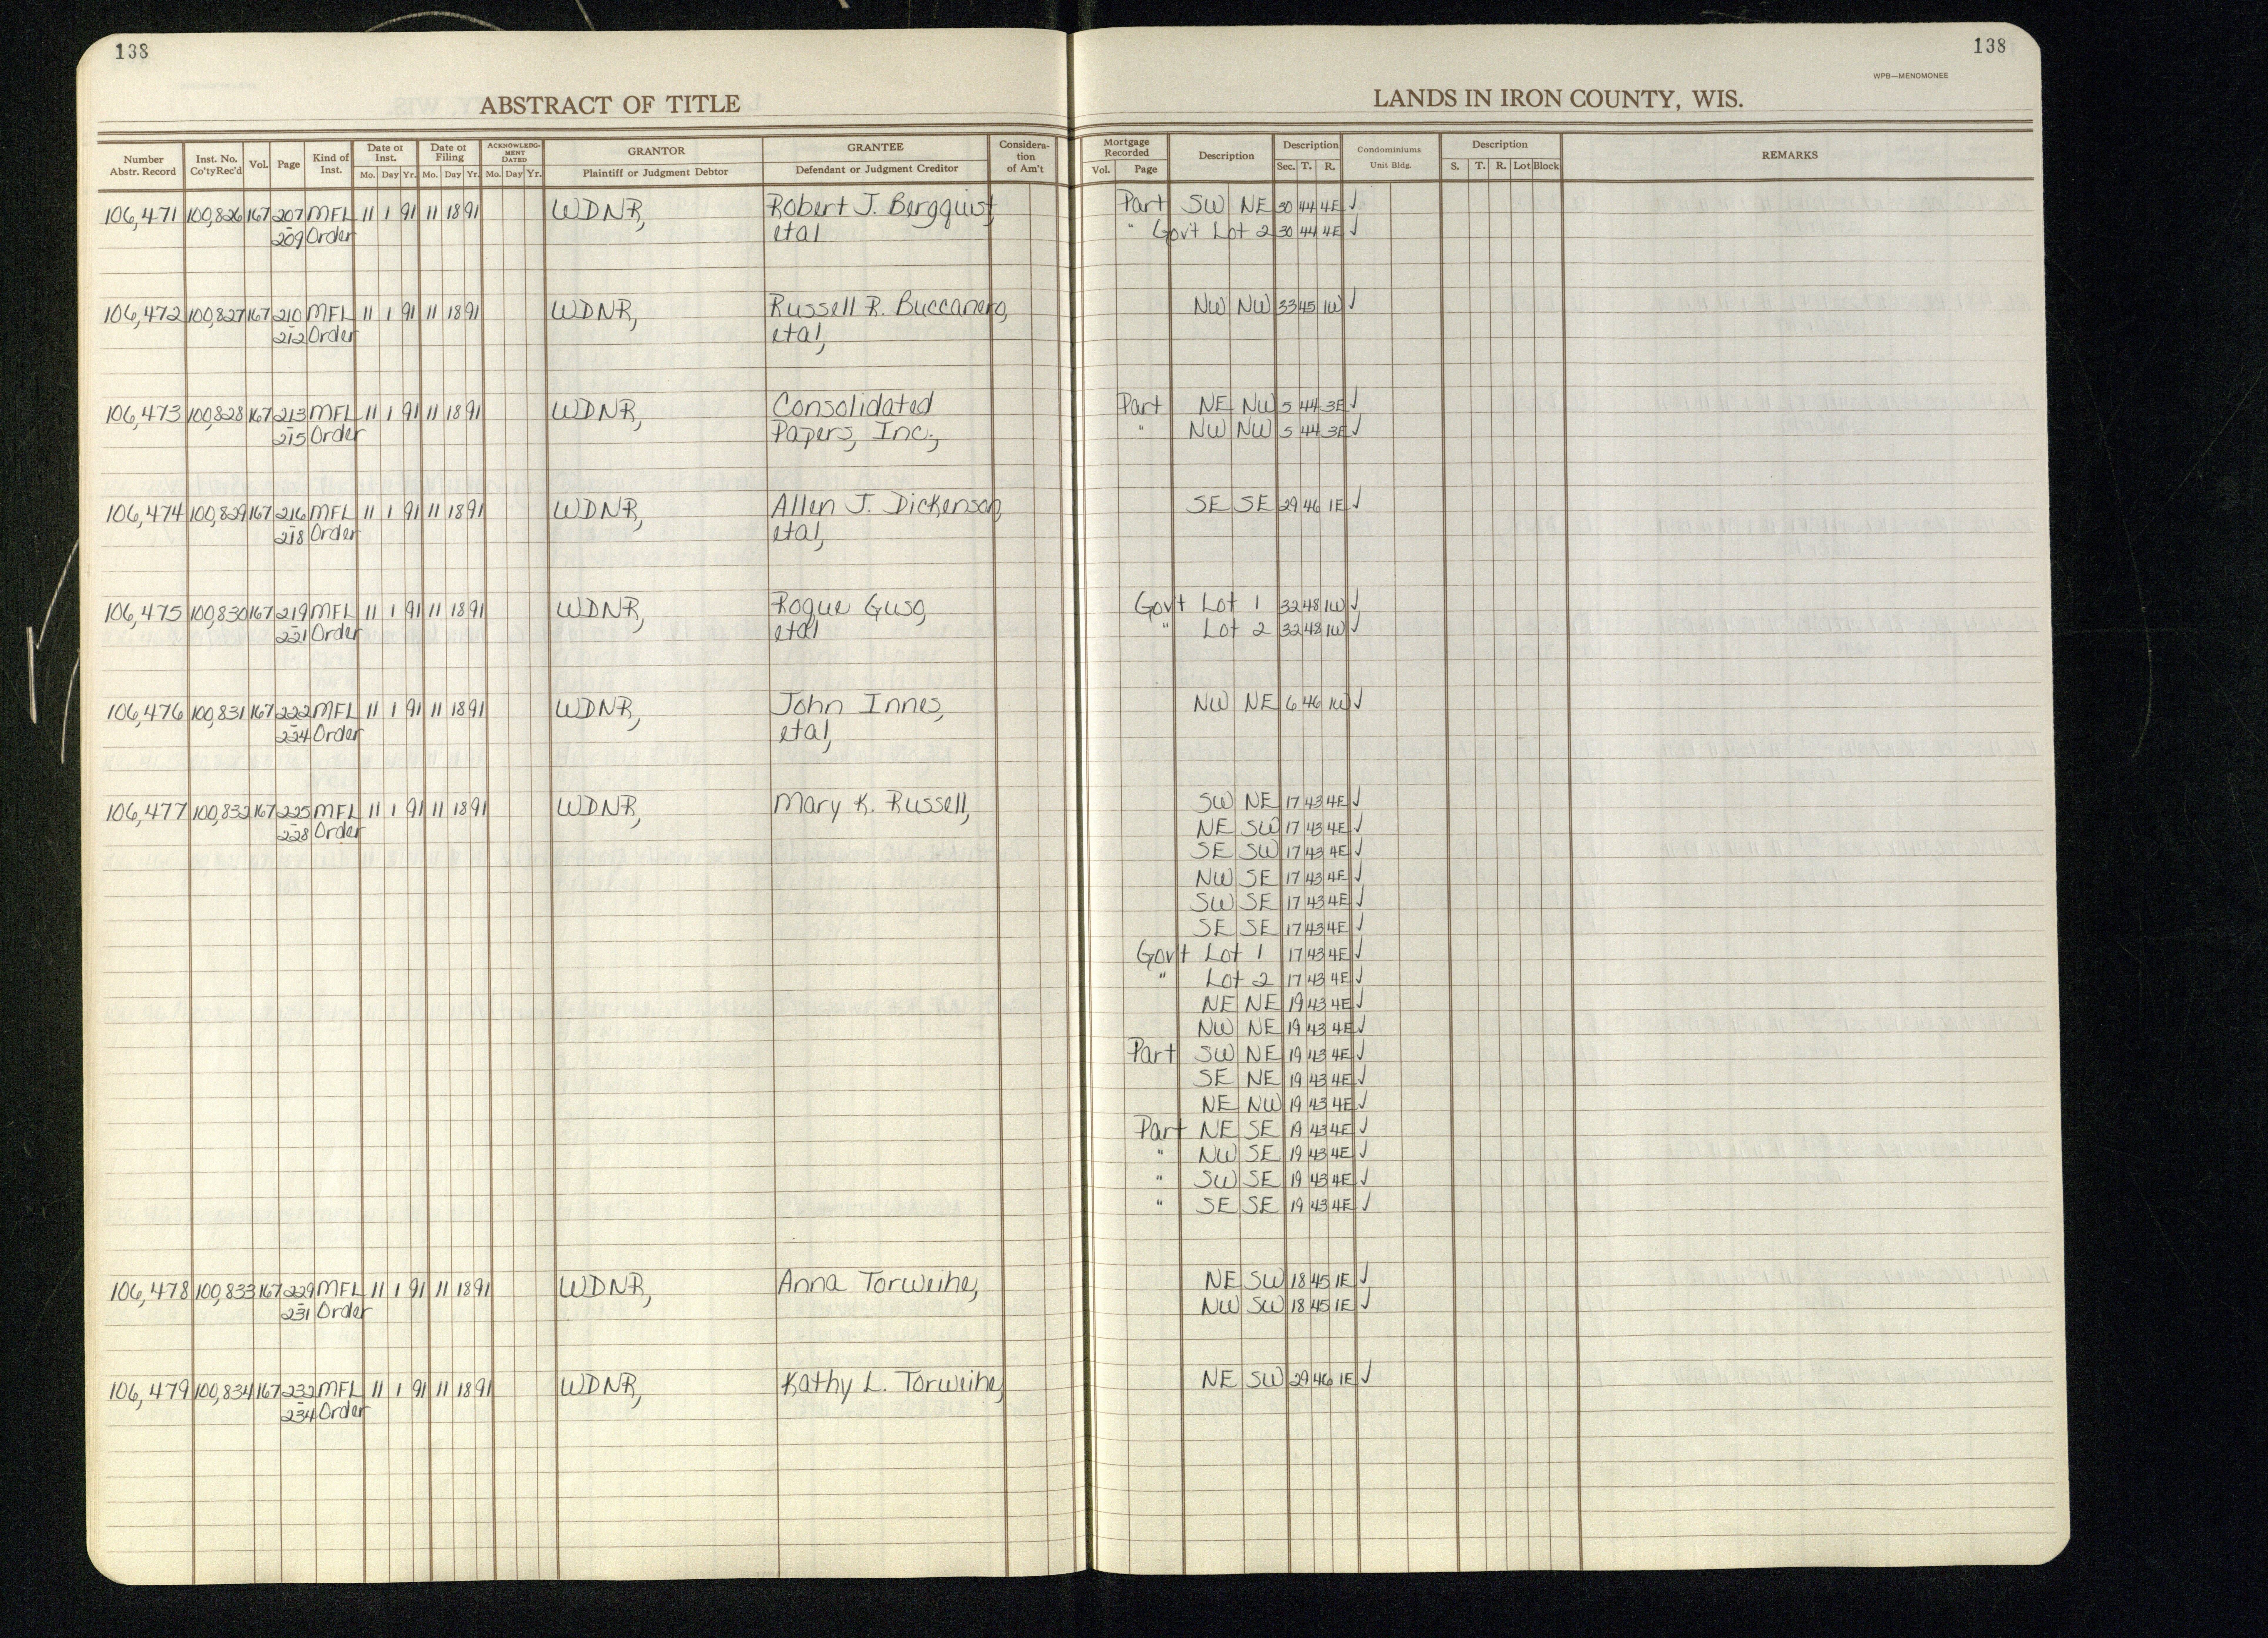 138
138
WPB—MENOMONEE
ABSTRACT OF TITLE
LANDS IN IRON COUNTY, WIS.
Number Abstr. Record Inst. No. Co'tyRec'd Vol. Page Kind of Inst. Date of Inst. Mo. Day Yr. Date of Filing Mo. Day Yr. ACKNOWLEDGMENT DATED Mo. Day Yr. GRANTOR Plaintiff or Judgment Debtor GRANTEE Defendant or Judgment Creditor Consideration of Am't Mortgage Recorded Vol. Page Description Description Sec. T. R. Condominiums Unit Bldg. Description S. T. R. Lot Block REMARKS
106,471 100,826 167 207 MFL 11 1 91 11 18 91 WDNR, Robert J. Bergquist, Part SW NE 30 44 4E ✓
209 Order etal " Gov't Lot 2 30 44 4E ✓
106,472 100,827 167 210 MFL 11 1 91 11 18 91 WDNR, Russell R. Buccanero, NW NW 33 45 1W ✓
212 Order etal,
106,473 100,828 167 213 MFL 11 1 91 11 18 91 WDNR, Consolidated Part NE NW 5 44 3E ✓
215 Order Papers, Inc., " NW NW 5 44 3E ✓
106,474 100,829 167 216 MFL 11 1 91 11 18 91 WDNR, Allen J. Dickenson, SE SE 29 46 1E ✓
218 Order etal,
106,475 100,830 167 219 MFL 11 1 91 11 18 91 WDNR, Rogue Guso, Govt Lot 1 32 48 1W ✓
221 Order etal " Lot 2 32 48 1W ✓
106,476 100,831 167 222 MFL 11 1 91 11 18 91 WDNR, John Innes, NW NE 6 46 1W ✓
224 Order etal,
106,477 100,832 167 225 MFL 11 1 91 11 18 91 WDNR, Mary K. Russell, SW NE 17 43 4E ✓
228 Order NE SW 17 43 4E ✓
SE SW 17 43 4E ✓
NW SE 17 43 4E ✓
SW SE 17 43 4E ✓
SE SE 17 43 4E ✓
Govt Lot 1 17 43 4E ✓
" Lot 2 17 43 4E ✓
NE NE 19 43 4E ✓
NW NE 19 43 4E ✓
Part SW NE 19 43 4E ✓
SE NE 19 43 4E ✓
NE NW 19 43 4E ✓
Part NE SE 19 43 4E ✓
" NW SE 19 43 4E ✓
" SW SE 19 43 4E ✓
" SE SE 19 43 4E ✓
106,478 100,833 167 229 MFL 11 1 91 11 18 91 WDNR, Anna Torweihe, NE SW 18 45 1E ✓
231 Order NW SW 18 45 1E ✓
106,479 100,834 167 232 MFL 11 1 91 11 18 91 WDNR, Kathy L. Torweihe, NE SW 29 46 1E ✓
234 Order